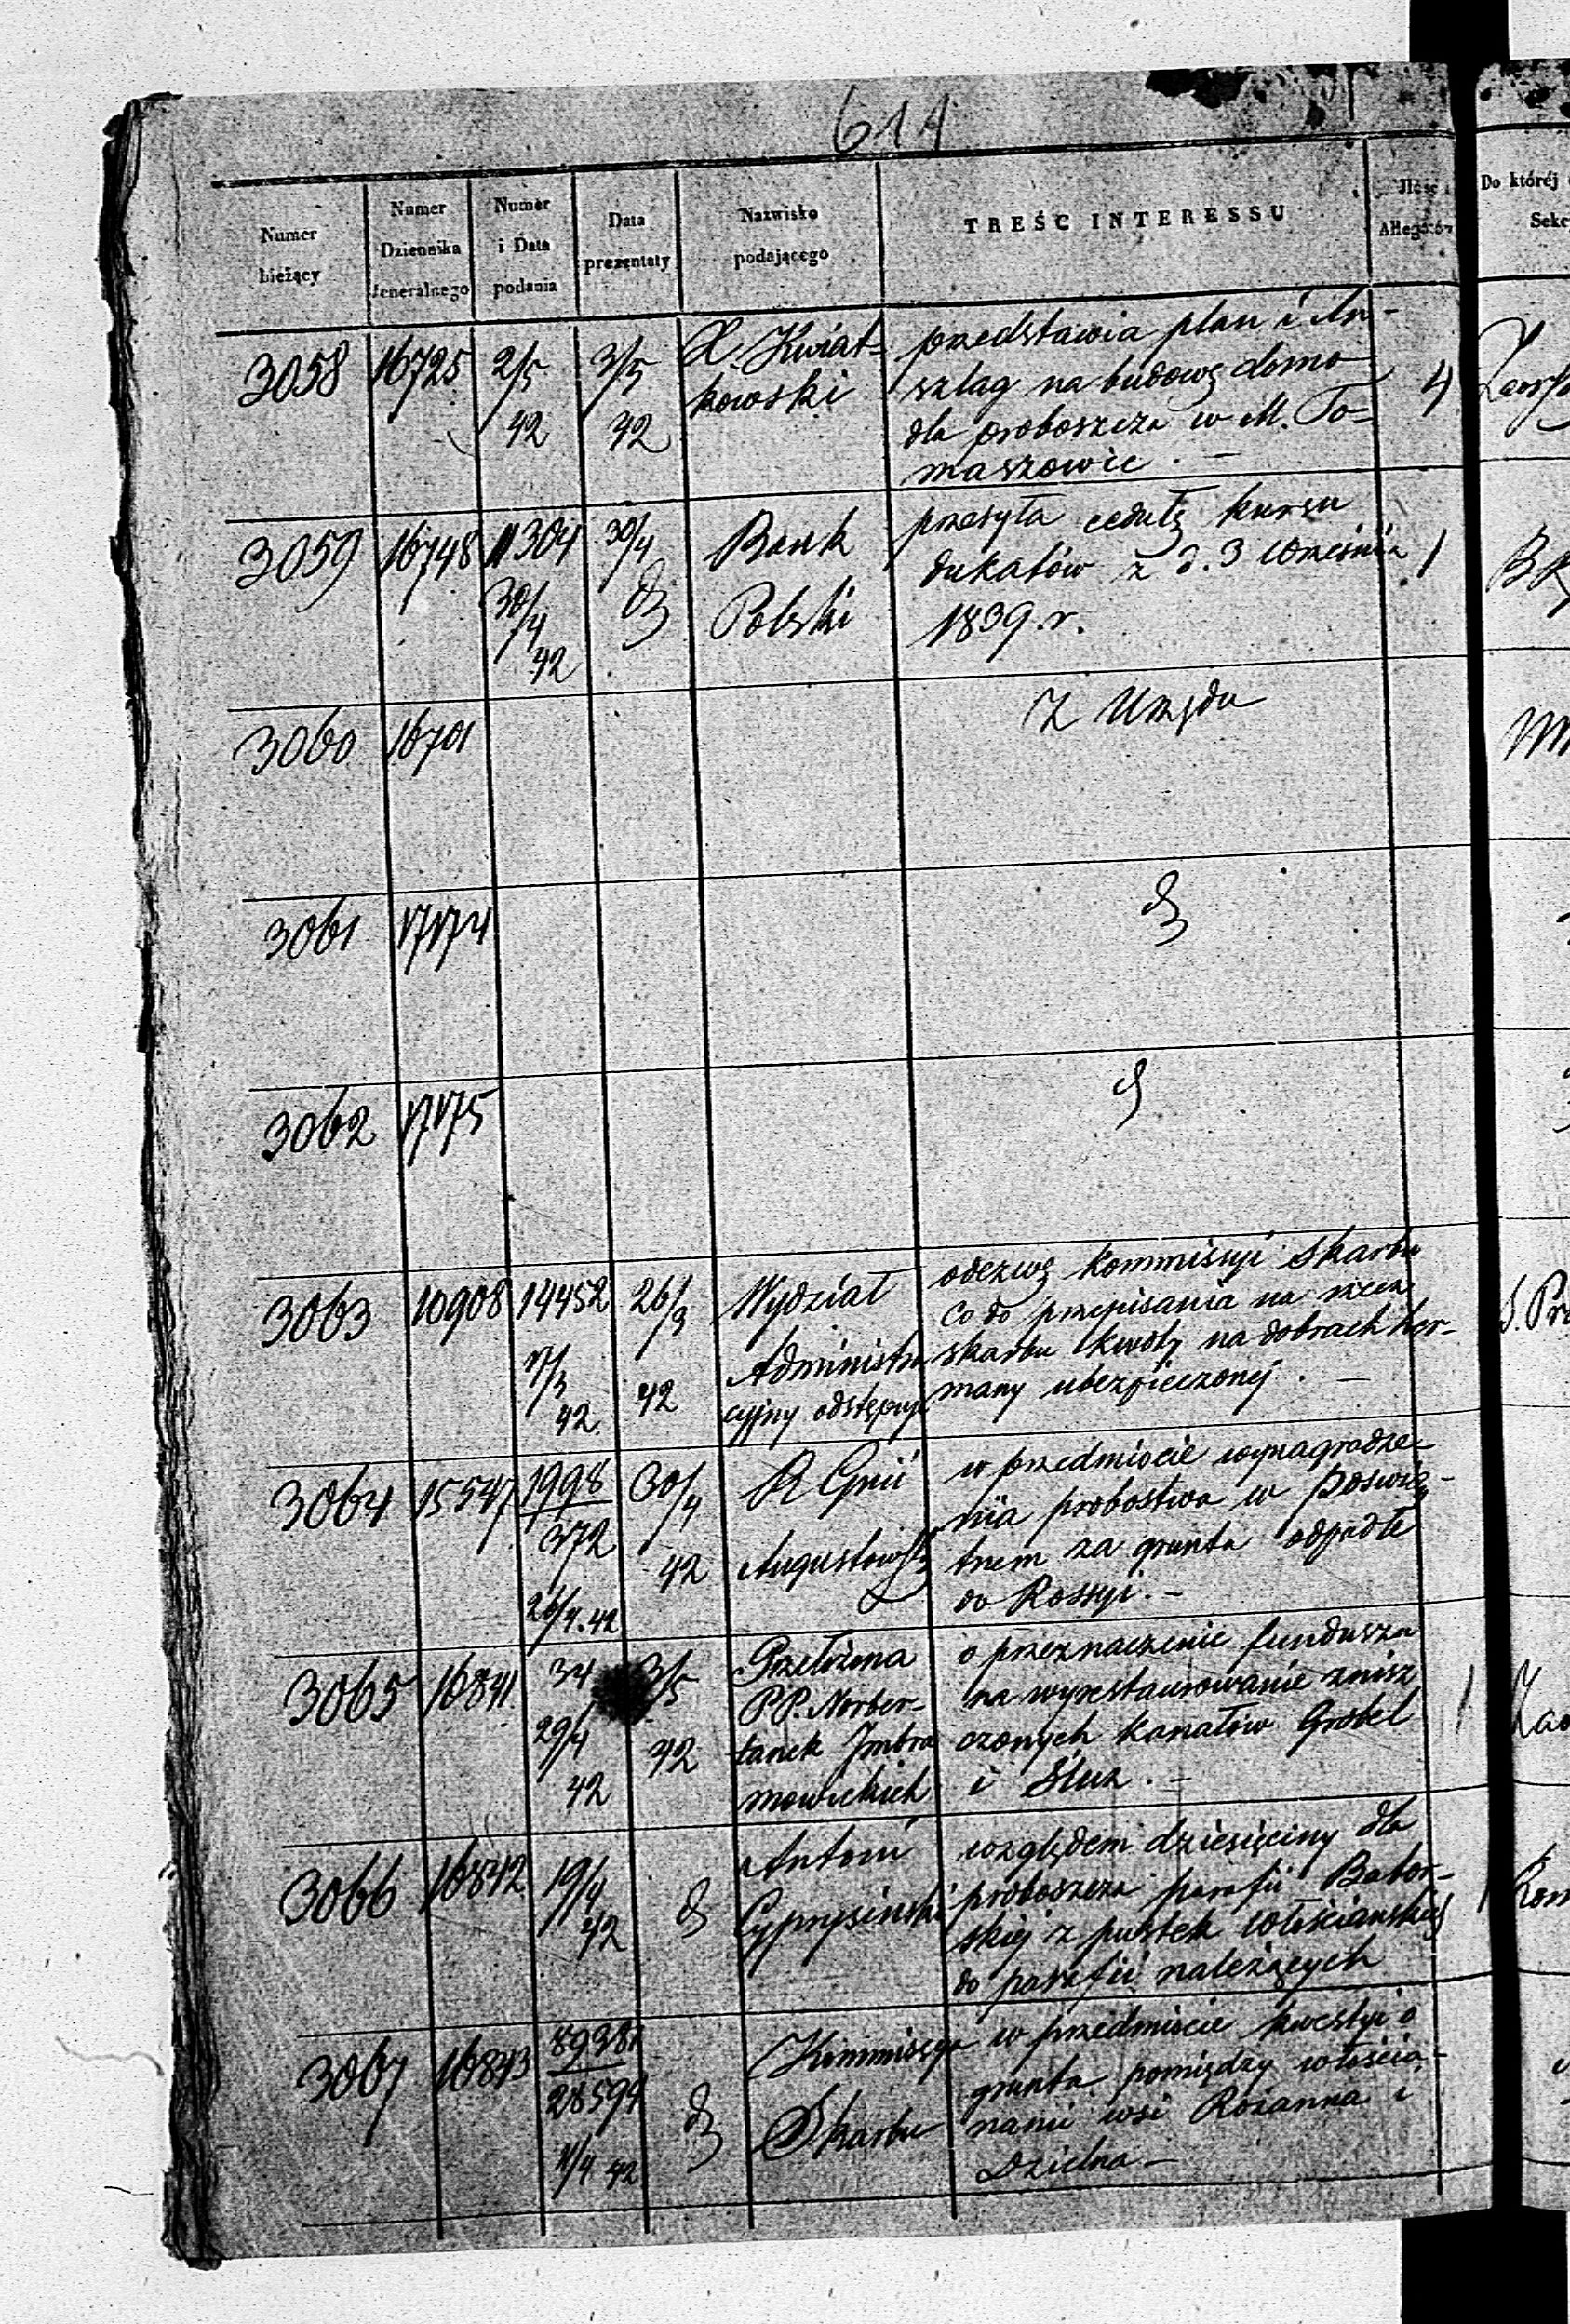 614
Numer bieżący
Numer Dziennika Jeneralnego
Numer i Data podania
Data prezentaty
Nazwisko podającego
TREŚĆ INTERESSU
Ilość Allegatów
Do któréj
Sekc
3058 16725 2/5 42 3/5 42
X. Kwiat-
kowski
przedstawia plan i An-
szlag na budowę domo
dla proboszcza w M. To=
maszowie. –
4
3059 16748 11304 30/4 42 30/4 d
Bank
Polski
przesyła cedułę kursu
dukatów z d. 3 Września
1839.r.
1
3060 16701
Z Urzędu
3061 17174
d
3062 17175
d
3063 10908 14452 17/3 42 26/3 42
Wydział
Administra
cyjny odstępuje
odezwę Kommissyi Skarbu
co do przepisania na rzecz
skarbu kwoty na dobrach Ker-
many ubezpieczonej. –
3064 15547 1998/372 26/4.42 30/4 42
R Gnii
Augustowski
w przedmiocie wynagrodze-
nia probostwa w Poswię-
tnem za grunta odpadłe
do Rossyi. –
3065 16841 34 29/4 42 3/5 42
Przełożona
PP. Norber-
tanek Imbra
mowickich
o przeznaczenie funduszu
na wyrestaurowanie znisz
czonych kanałów Grobel
i Śluz. –
1
3066 16842 19/4 42 d
Antoni
Cyprysiński
względem dziesięciny dla
proboszcza parafii Babor-
skiej z pustek włościańskich
do parafii należących
1
3067 16843 89381/28599 11/4 42 d
Kommissya
Skarbu
w przedmiocie kwestyi o
grunta pomiędzy włościa-
nami wsi Rożanna i
Dzielna –